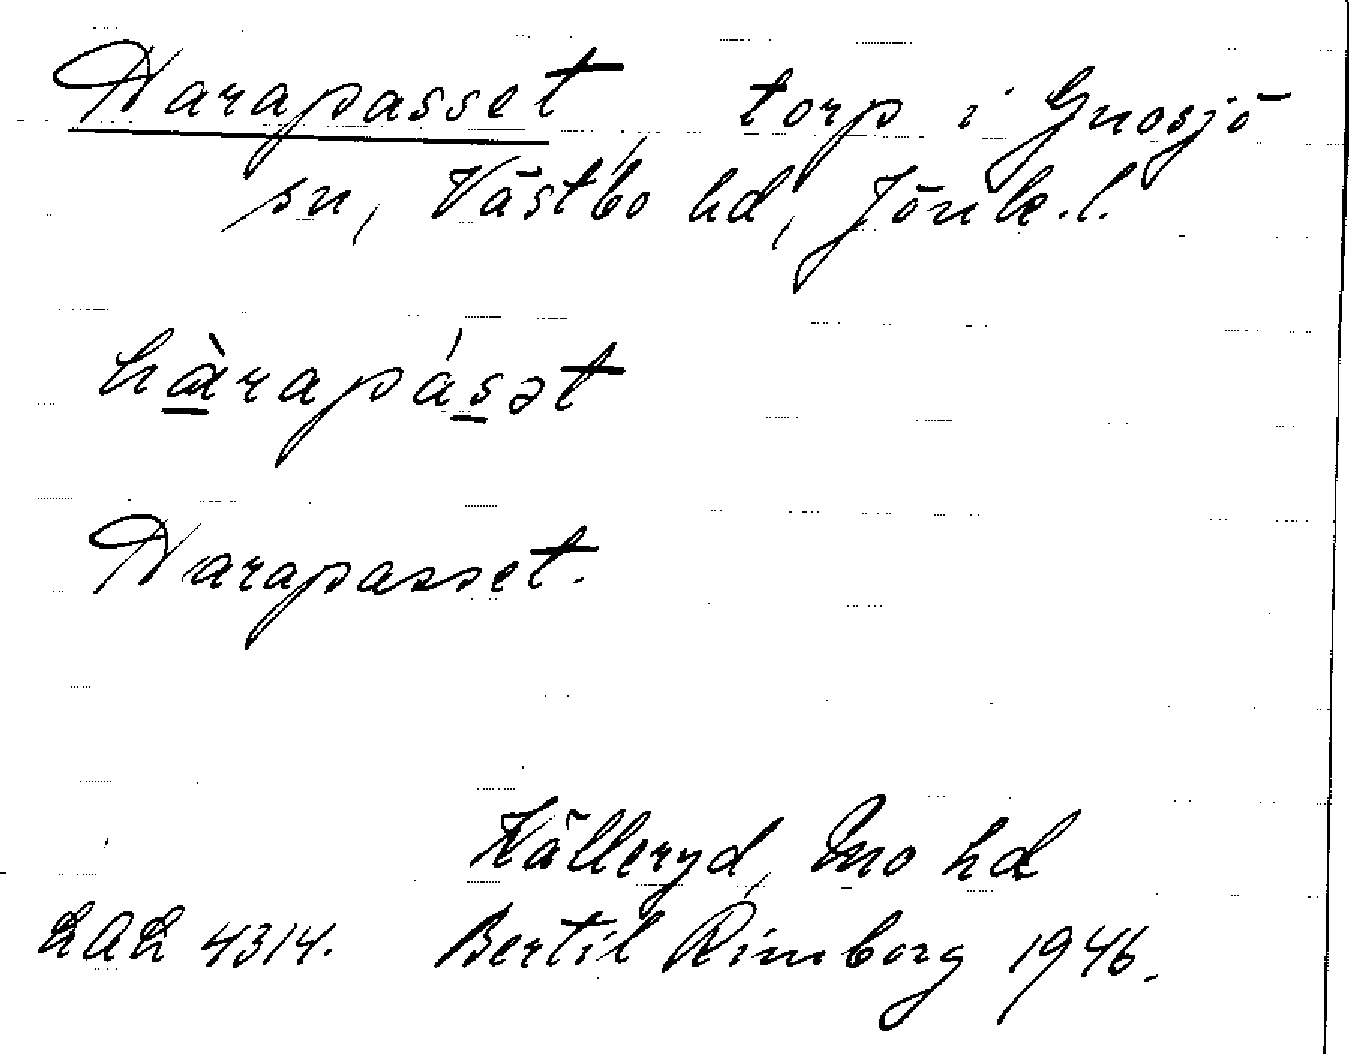 Harapasset, torp i Gnosjö
sn, Västbo hd, Jönk. l.
hàrapásət
Harapasset.
Källeryd, Mo hd
LAL 4314. Bertil Rimborg 1946.